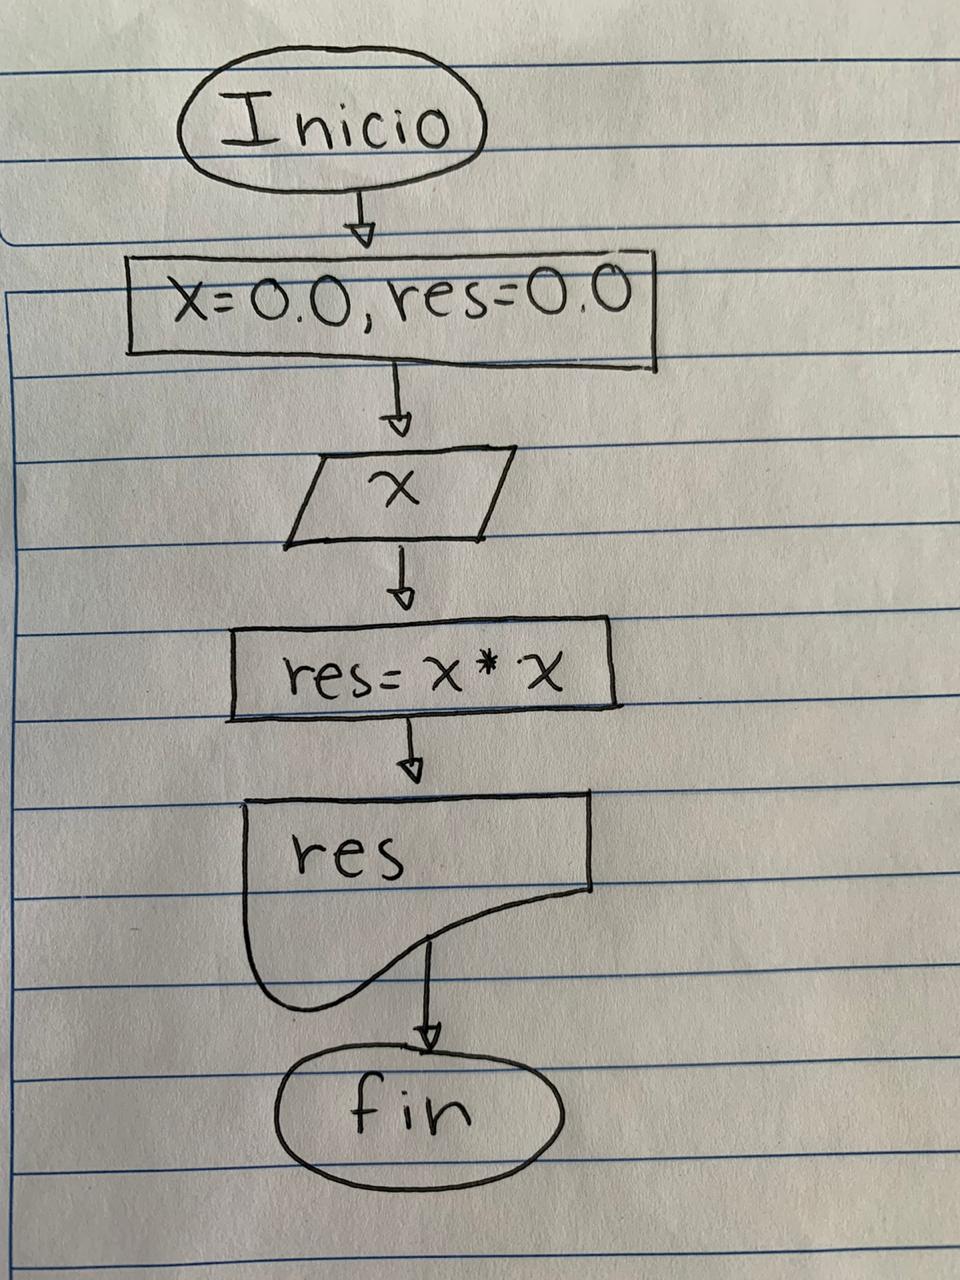 Inicio
x=0.0, res=0.0
x
res= x * x
res
fin